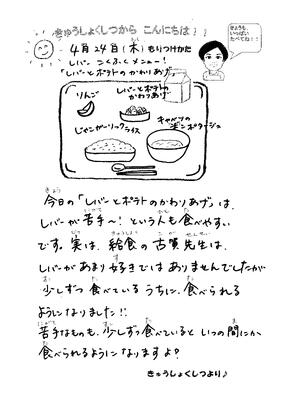 きゅうしょくしつから こんにちは！！
きょうも、
いっぱい
たべてね！！
4月24日(木)もりつけかた
レバーこくふくメニュー！
「レバーとポテトのかわりあげ」
りんご
レバーとポテトの
かわりあげ
じゃンガーリックライス
キャベツの
ポンポタージュ
今日の「レバーとポテトのかわりあげ」は、
レバーが苦手〜！という人も食べやすい
です。実は、給食の古賀先生は、
レバーがあまり好きではありませんでしたが
少しずつ食べているうちに、食べられる
ようになりました!!
苦手なものも、少しずつ食べていると いつの間にか
食べられるようになりますよ?
きゅうしょくしつより♪